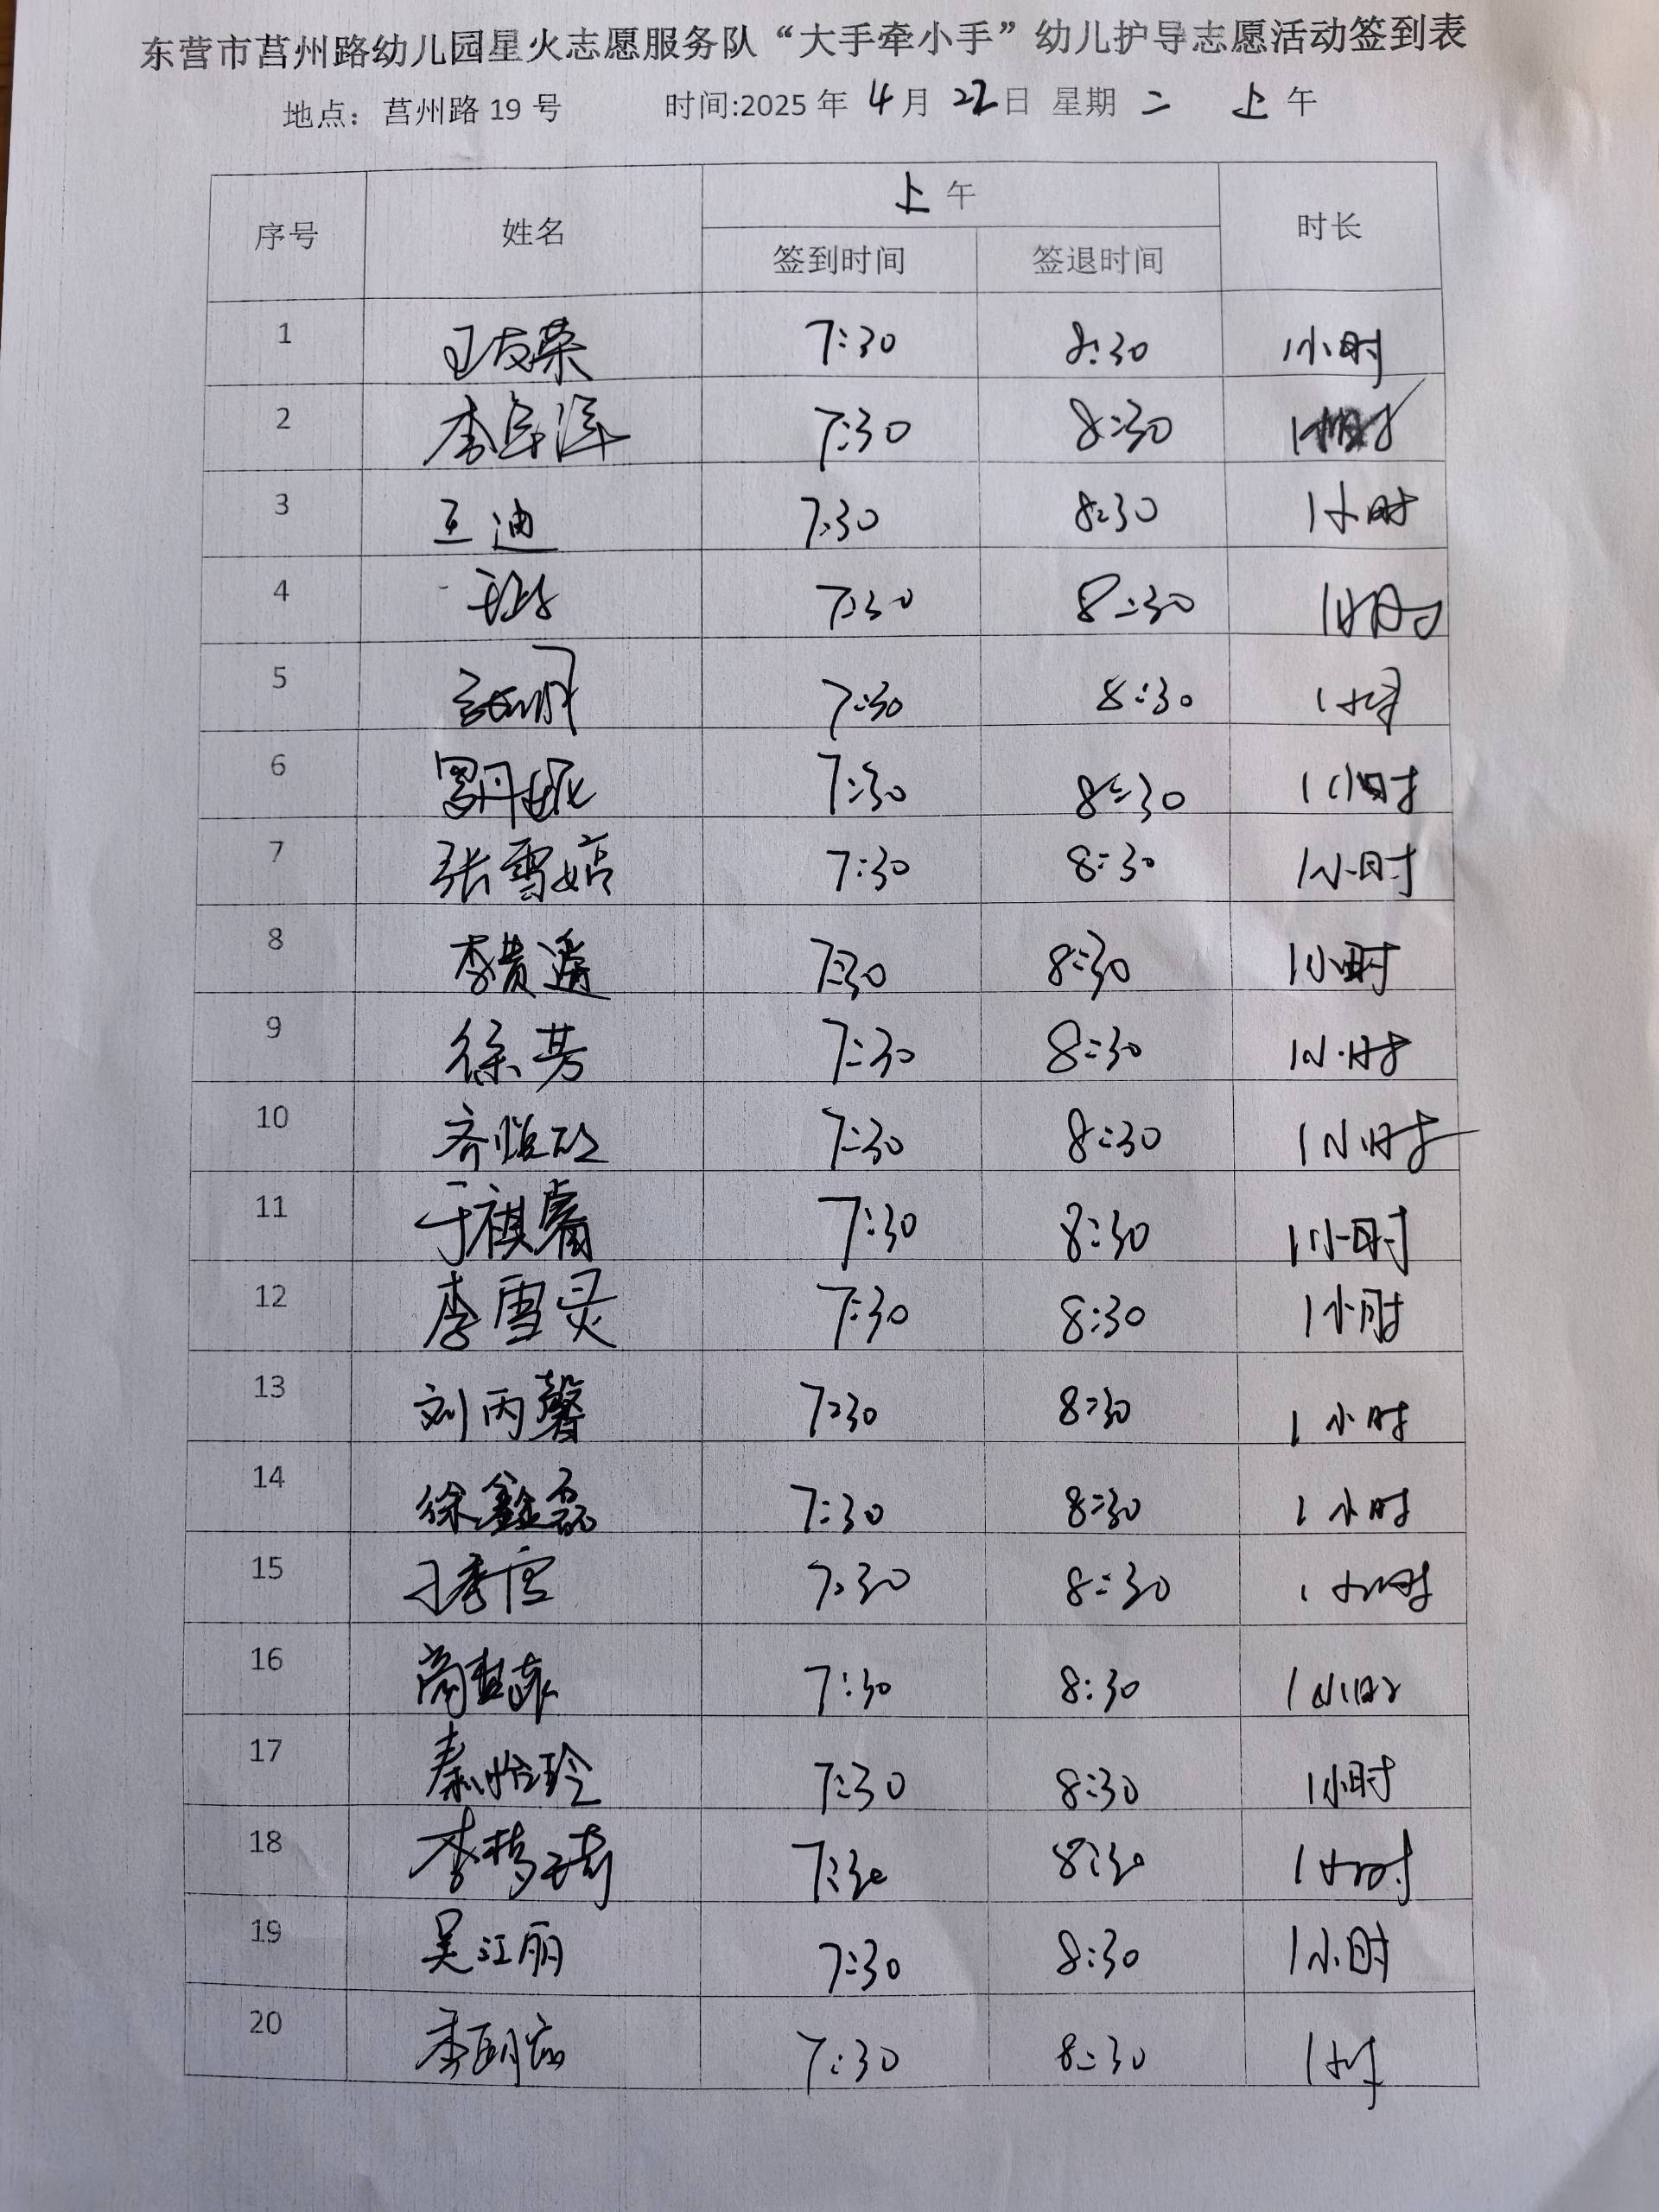 东营市莒州路幼儿园星火志愿服务队“大手牵小手”幼儿护导志愿活动签到表
地点：莒州路 19 号 时间:2025 年 4 月 22 日 星期 二 上 午
序号 姓名 上 午 时长
签到时间 签退时间
1 王友荣 7:30 8:30 1小时
2 7:30 8:30 1小时
3 王迪 7:30 8:30 1小时
4 7:30 8:30 1小时
5 7:30 8:30 1小时
6 7:30 8:30 1小时
7 张雪婷 7:30 8:30 1小时
8 7:30 8:30 1小时
9 徐芳 7:30 8:30 1小时
10 7:30 8:30 1小时
11 于祺 7:30 8:30 1小时
12 李雪灵 7:30 8:30 1小时
13 刘丙馨 7:30 8:30 1小时
14 徐鑫磊 7:30 8:30 1小时
15 7:30 8:30 1小时
16 7:30 8:30 1小时
17 秦怡玲 7:30 8:30 1小时
18 李梦琦 7:30 8:30 1小时
19 吴江丽 7:30 8:30 1小时
20 7:30 8:30 1小时